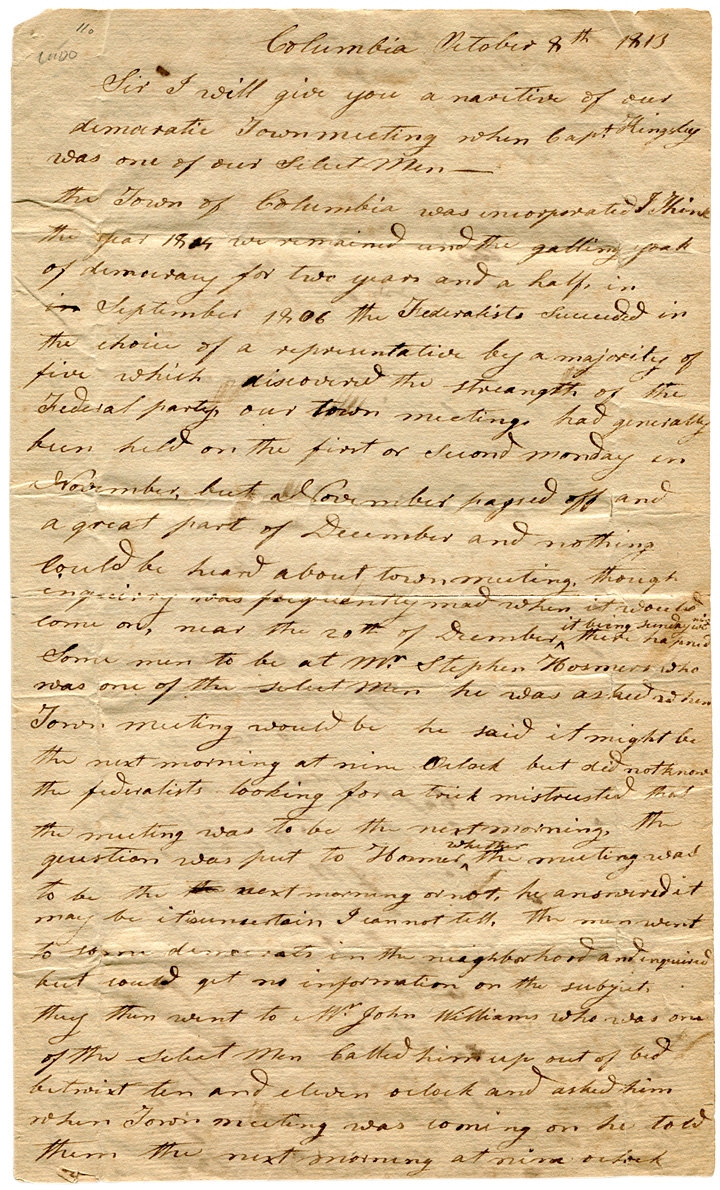 110
Columbia October 8th 1813
Sir I will give you a naritive of our
democratic Townmeeting when Capt. Kingsley
was one of our Select Men—
the Town of Columbia was incorporated I Think
the year 1804 we remained und the galling yoak
of democracy for two years and a half, in
in September 1806 the Federalists Succeeded in
the choice of a representative by a majority of
five which discovered the streangth of the
Federal party, our town meetings had generally
been held on the first or Second monday in
November, but al November passed off and
a great part of December and nothing
Could be heard about townmeeting, though
inquiery was frequently mad when it would
come on, near the 20th of December, it being sunday there hapned
Some men to be at Mr Stephen Hosmers who
was one of the select Men he was asked when
Town meeting would be he said it might be
the next morning at nine Oclock but did not know
the federalists looking for a trick mistrusted that
the meeting was to be the next morning, the
question was put to Hosmer, whether the meeting was
to be the the next morning or not, he answered it
may be it is uncertain I cannot tell, the men went
to some democrats in the neighborhood and enquired
but could get no information on the subject,
they then went to Mr John Williams who was one
of the Select Men Called him up out of bed
betwixt ten and eleven oclock and asked him
when Town meeting was coming on he told
them the next morning at nine oclock